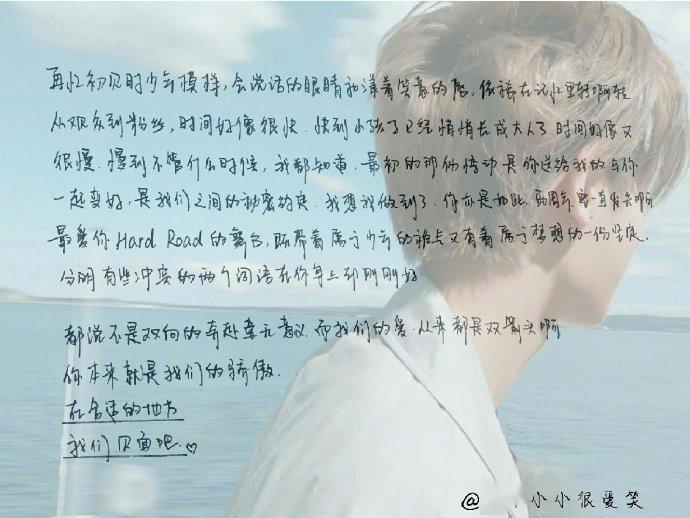 再忆初见时少年模样,会说话的眼睛和漾着笑意的唇,依稀在记忆里轻啊轻
从观众到粉丝,时间好像很快.快到小孩子已经悄悄长成大人了.时间好像又
很慢.慢到不管什么时候,我都知道.最初的那份悸动是你送给我的.与你
一起变好,是我们之间的秘密约定.我想我做到了.你亦是如此.两周年,要一直发光啊
最爱你Hard Road的舞台,既带着属于少年的棱角又有着属于梦想的一份坚定.
分明有些冲突的两个词语在你身上却刚刚好.
都说不是双向的奔赴毫无意义.而我们的爱.从来都是双箭头啊
你本来就是我们的骄傲.
在合适的地方
我们见面吧.♡
@ 小小很爱笑